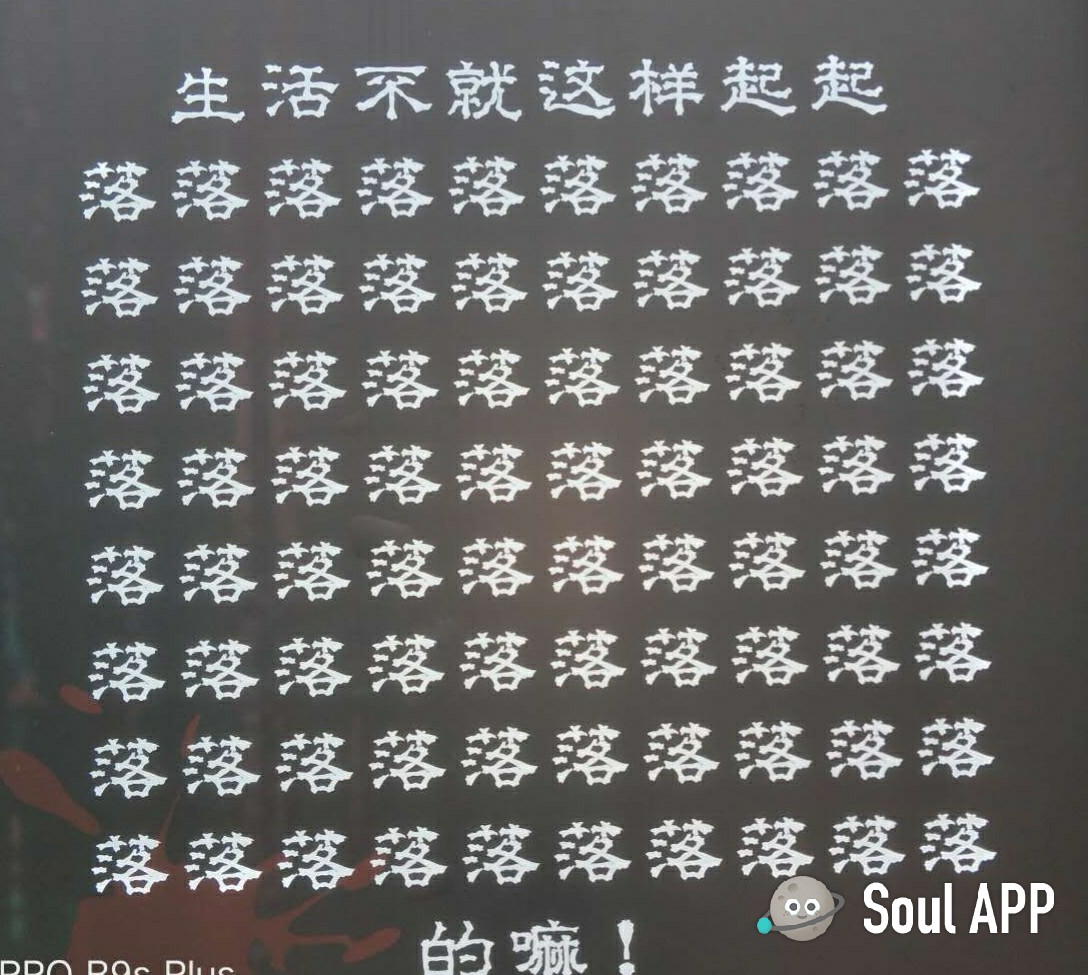 生活不就这样起起
落落落落落落落落落落
落落落落落落落落落落
落落落落落落落落落落
落落落落落落落落落落
落落落落落落落落落落
落落落落落落落落落落
落落落落落落落落落落
落落落落落落落落落落
的嘛！
Soul APP
PPO R9s Plus